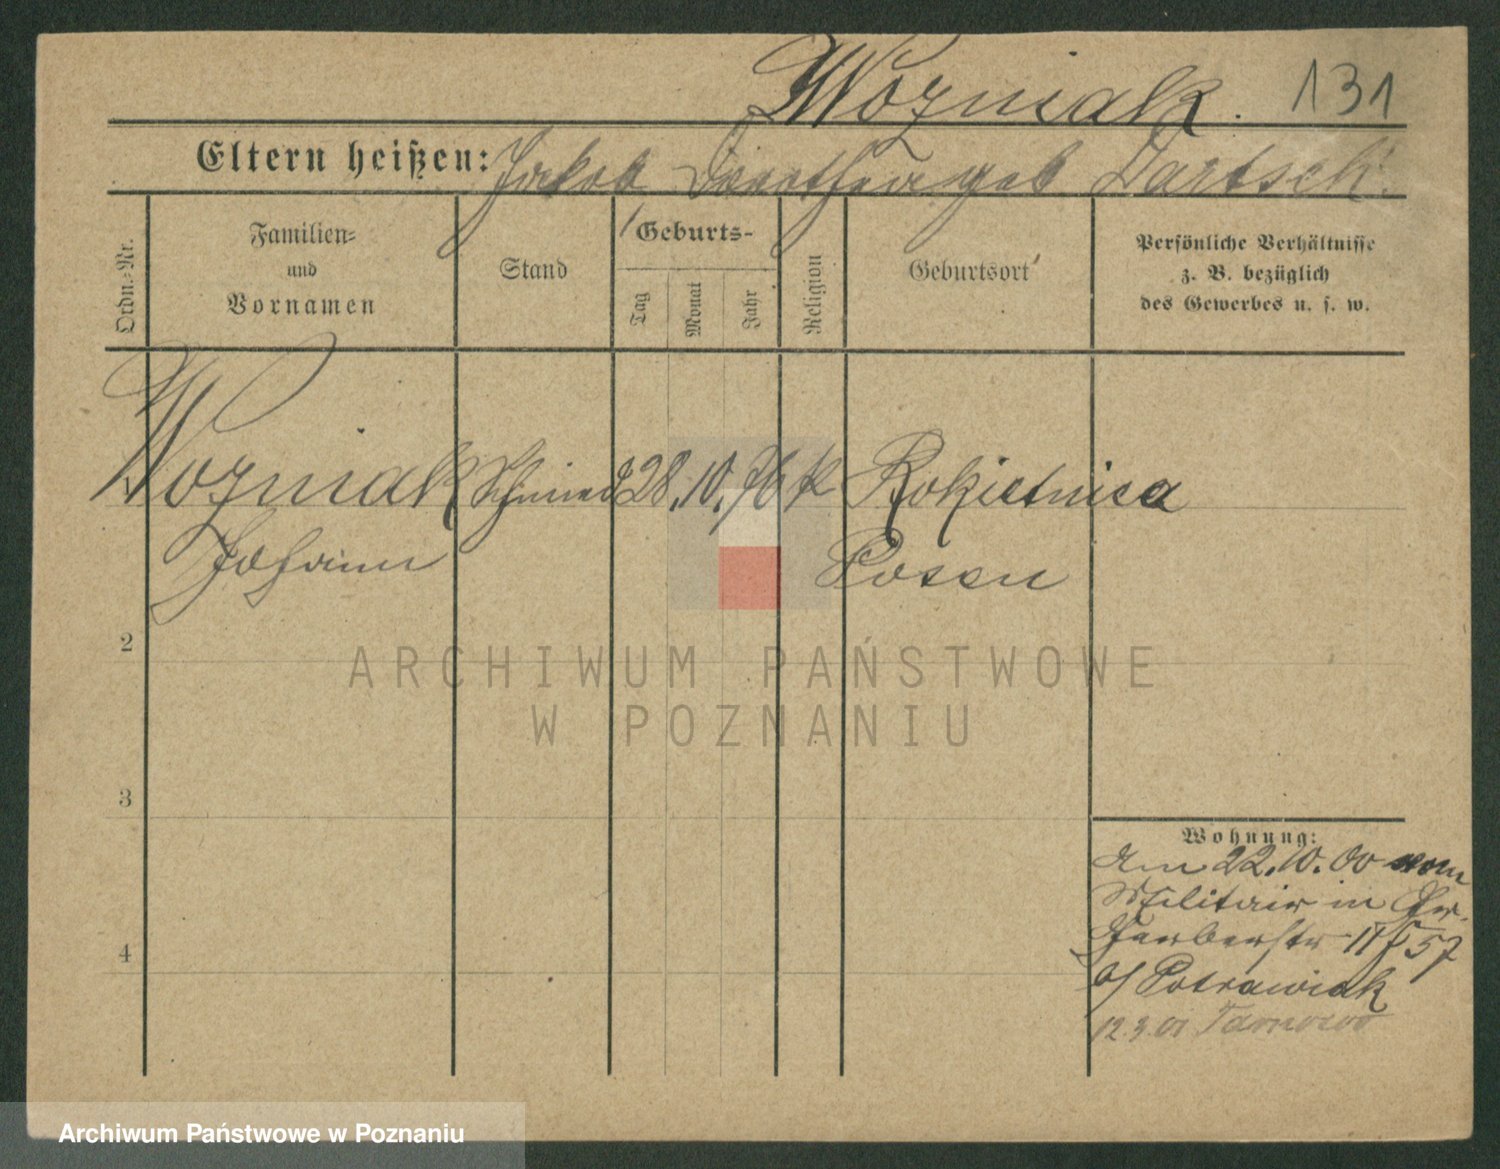 Wozniak. 131
Eltern heißen: Jakob Dorothea geb Bartsch.
Ordn.=Nr.
Familien=
und
Vornamen
Stand
Geburts-
Tag
Monat
Jahr
Religion
Geburtsort
Persönliche Verhältnisse
z. B. bezüglich
des Gewerbes u. s. w.
Wozniak Schmied 28. 10. 76 k Rokietnica
Johann Posen
2
ARCHIWUM PAŃSTWOWE
W POZNANIU
3
Wohnung:
Am 22.10.00 vom
Militair in Gr.
Gerberstr 57
b/ Potrawiak
12.3.01 Tarnowo
4
Archiwum Państwowe w Poznaniu